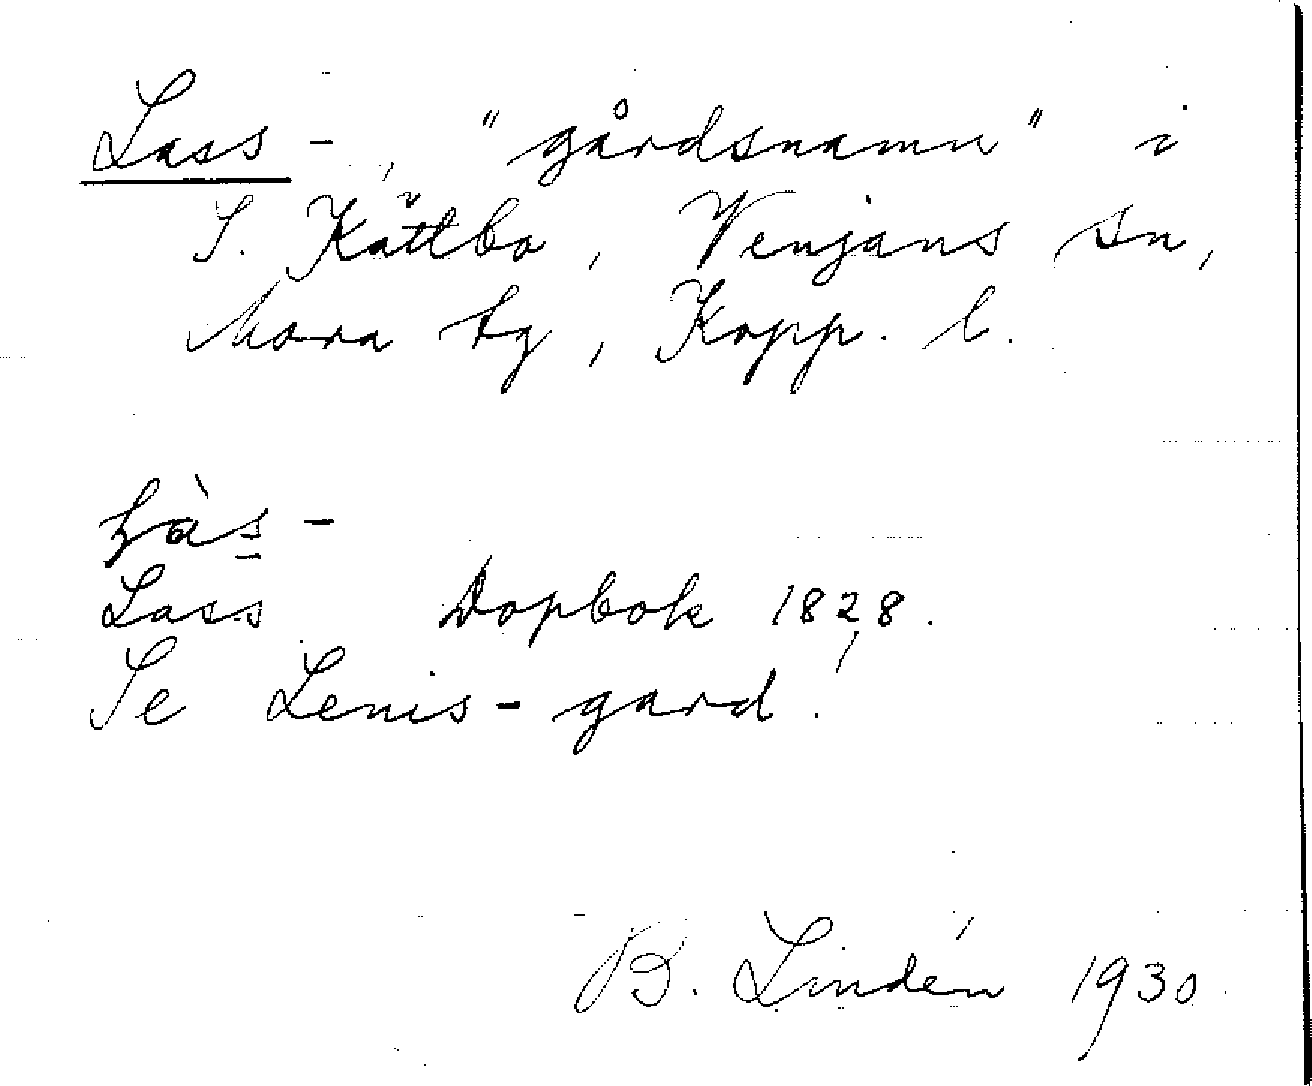 Lass-, "gårdsnamn" i
S. Kättbo, Venjans sn,
Mora tg, Kopp. l.
làs-
Lass Dopbok 1828.
Se Lenis-gard!
B. Lindén 1930